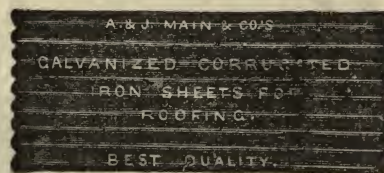 A. & J. MAIN & CO'S
GALVANIZED CORRUGATED
IRON SHEETS FOR
ROOFING.
BEST QUALITY.